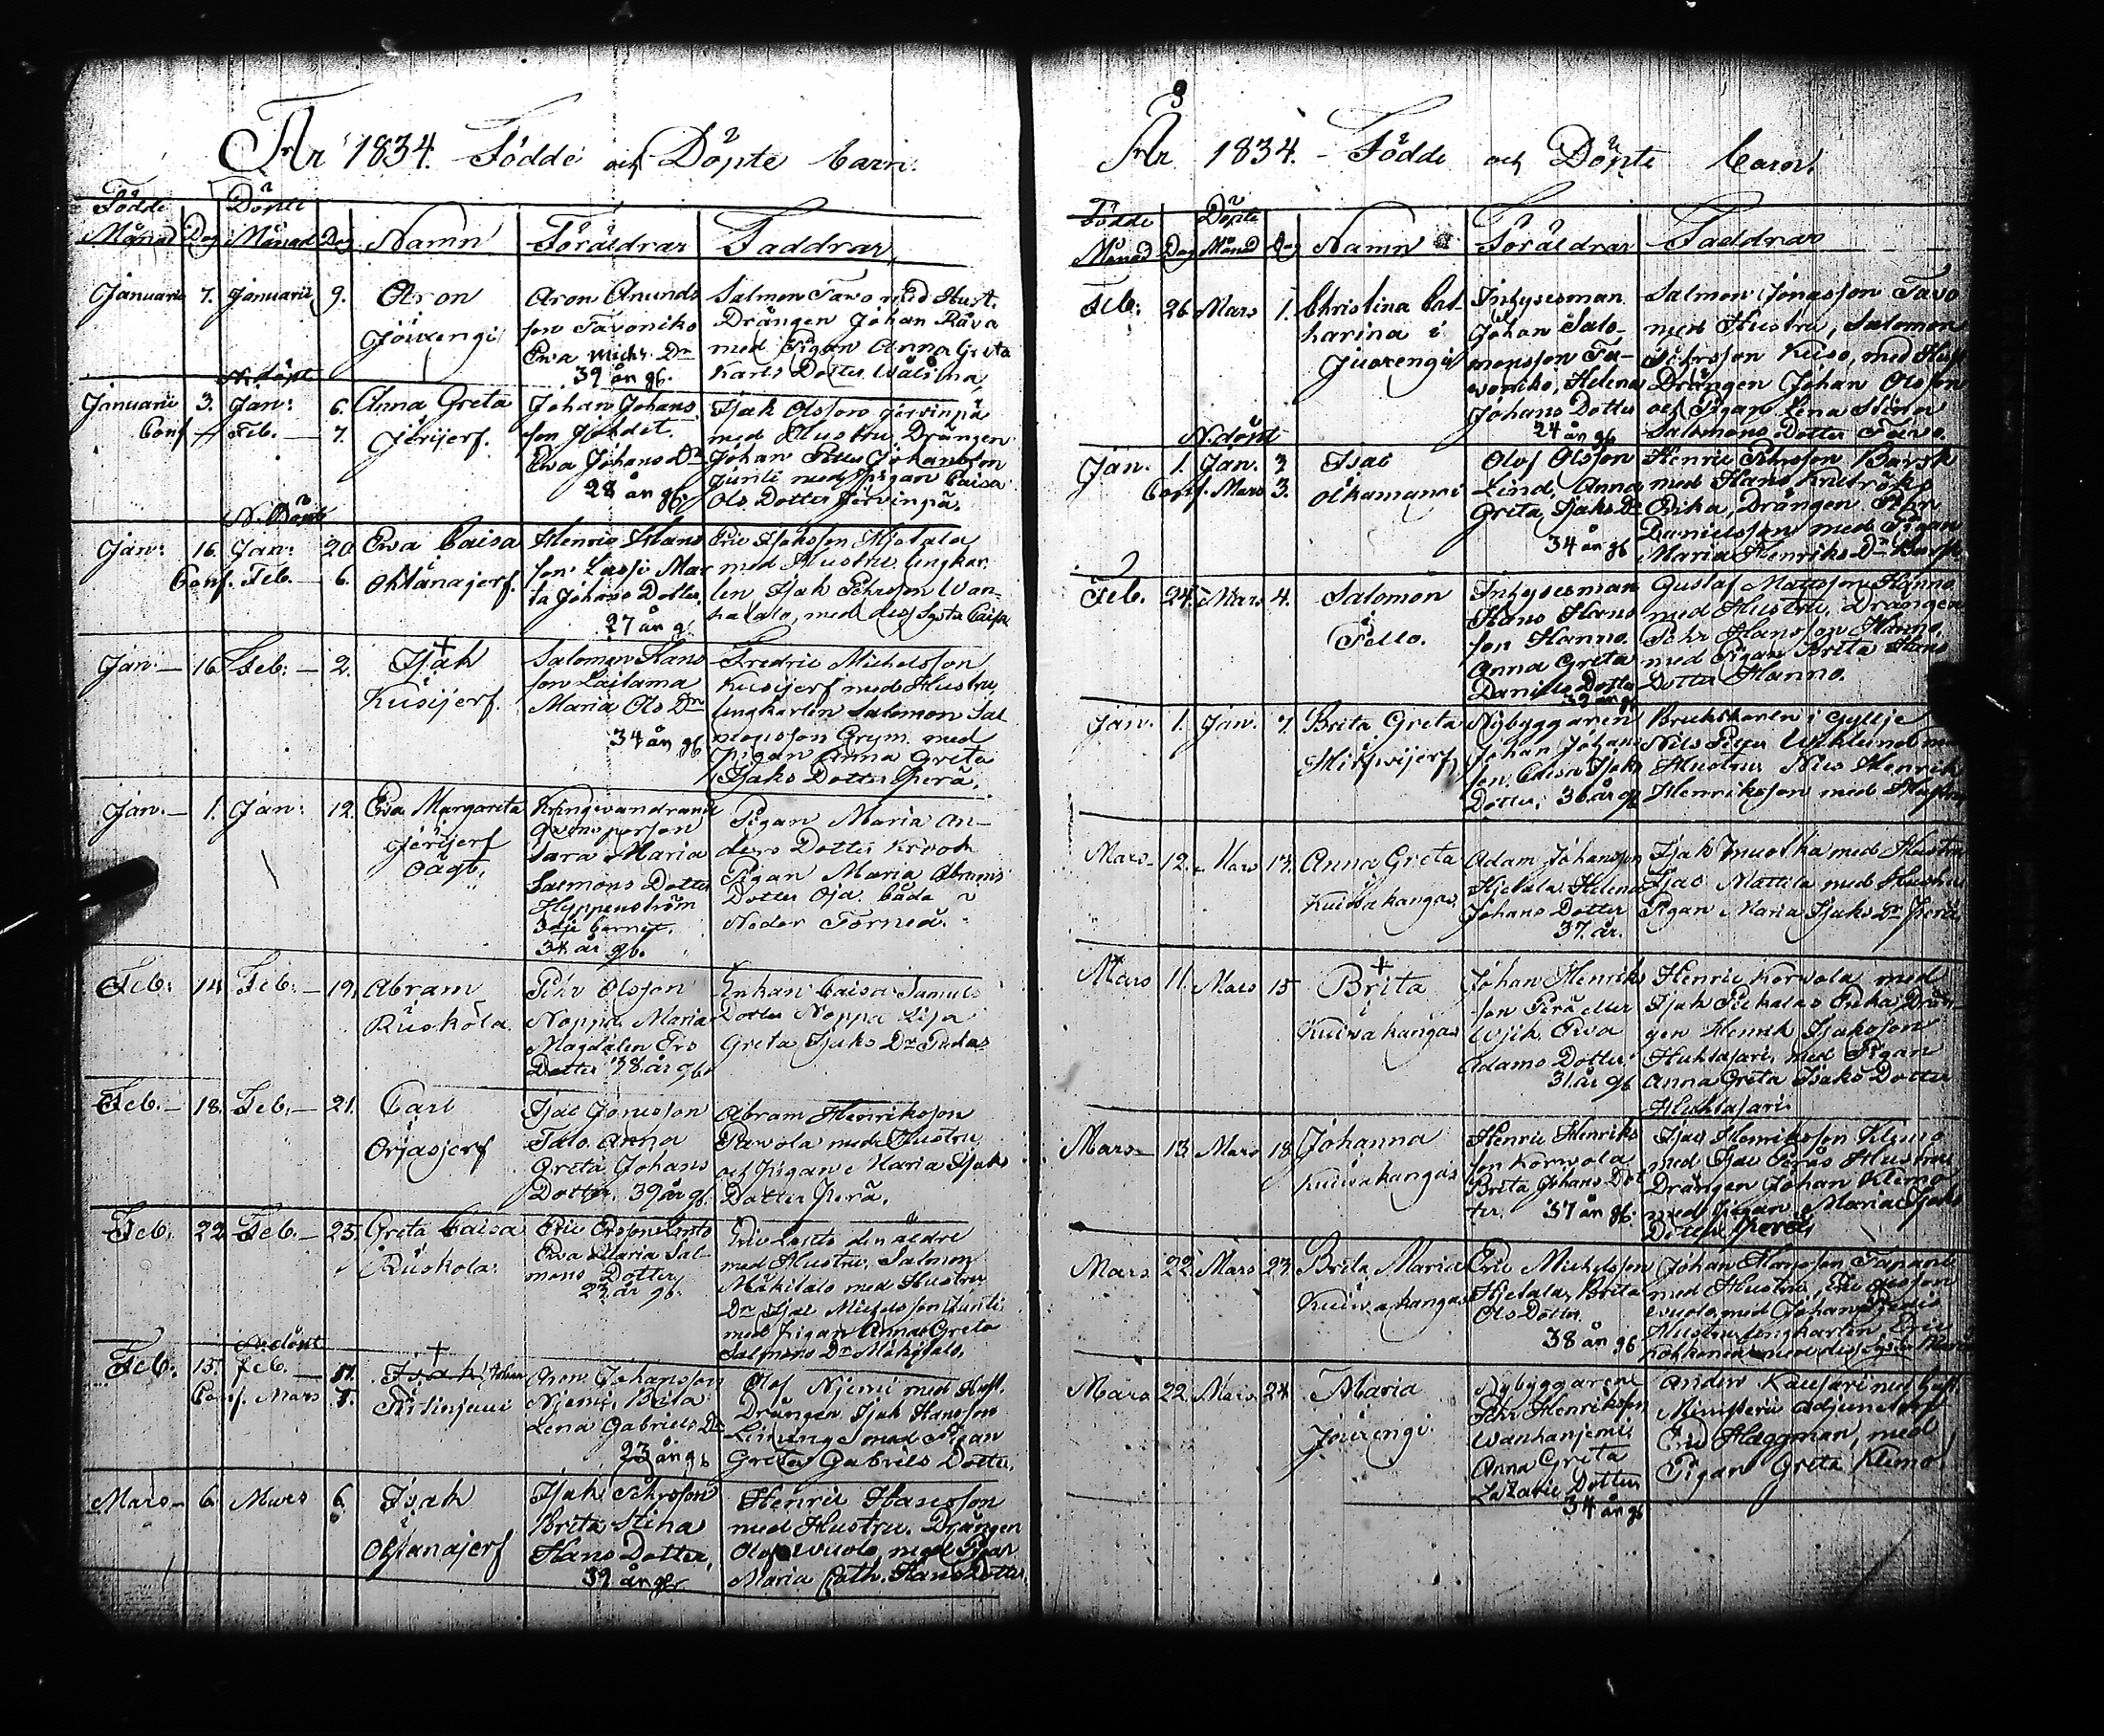 År 1834. Födde och Döpte barn.
Födde Döpte
Månad Dag Månad Dag Namn Föräldrar Faddrar
Januarii 7. Januarii 9. Aron
Jouxengi
Aron Anunds
son Tavoniko
Ewa Michs. Dr
39 år gl.
Salmon Tavo med Hust.
Drängen Johan Räva
med Pigan Anna Greta
Karls Dotter
N. döpt
Januarii 3. Jan: 6. Anna Greta
Conf. Feb. 7. Jerijerf.
Johan Johans
son
Ewa Johans Dr
28 år gl.
Isak Olsson Jervinpä
med Hustru Drängen
Johan Petter Johansson
Junti med pigan Caisa
Ols Dotter Jervinpä.
N. Döpt
Jan: 16. Jan: 20 Ewa Caisa
Conf. Feb. 6. Ohtanajerf.
Henric Hans
son Lassi Mar
ta Johans Dotter
27 år gl
Eric Isaksson Hietala
med Hustru ungkar
len Isak Pehrsson Wan
hatalo, med dess Syster Caisa
Jan. 16. Feb. 2. Isak
Kusijerf.
Salomon Hans
son Laitama
Maria Ols Dr
34 år gl
Fredric Michelsson
Kusijerf med Hustru
ungkarlen Salomon Sal
monsson Grym med
Pigan Anna Greta
Isaks Dotter Perä.
Jan. 1. Jan: 12. Ewa Margareta
Jerijerf
oägt.
Kringvandrand
Qvinsperson
Sara Maria
Salmons Dotter
Klyppenström
3die barnet.
34 år gl.
Pigan Maria An
ders Dotter Krook
Pigan Maria Abrams
Dotter Oja. båda i
Neder Torneå.
Feb: 14 Feb. 19. Abram
Ruskola
Pehr Olsson
Noppa Maria
Magdalen Ers
Dotter 38 år gl.
Enkan Caisa Samuels
Dotter Noppa Lisa
Greta Isaks Dr
Feb. 18. Feb. 21. Carl
Orjasjerf
Isac Jonesson
Talo. Anna
Greta Johans
Dotter. 39 år gl.
Abram Henriksson
Pavola med Hustru
och Pigan Maria Isaks
Dotter Perä.
Feb. 22 Feb. 25. Greta Caisa
Ruskola
Eric Ersson
Ewa Maria Sal
mons Dotter
23 år gl.
Eric den äldre
med Hustru, Salmon
Mäkitalo med Hustru
Dr Isac Michelsson Junti
med Pigan Anna Greta
Salmons Dr Mäkitalo.
N. döpt
Feb. 15. Feb. 17. Isak
Conf. Mars
Johansson
Njemi, Brita
Lena Gabriels Dr
23 år gl
Olof Njemi med Hust.
Drängen Isak Hansson
med Pigan
Greta Gabriels Dotter.
Mars 6. Mars 6. Isak
Ohtanajerf
Isak Pehrsson
Brita Stina
Hans Dotter.
39 år gl
Henric Hansson
med Hustru. Drängen
Olof Wuolo med Pigan
Maria Cath. Hans Dotter.
År 1834. Födde och Döpte barn.
Födde Döpte
Månad Dag Månad Dag Namn Föräldrar Faddrar
Feb: 26 Mars 1. Christina Cat
harina i
Juoxengi
Inhysesman
Johan Salo
monsson Ta
woniko, Helena
Johans Dotter
24 år gl
Salmon Jonasson Tavo
med Hustru, Salomon
Pehrsson Kuso, med Hust
Drängen Johan Olsson
och Pigan Lena Stina
Salomons Dotter Tavo.
N. döpt
Jan. 1. Jan. 3 Isac
Conf. Mars 3.
Olof Olsson
Lind, Anna
Greta Isaks Dr
34 år gl
Henric Pehrsson Barsk
med Hans
Drängen Pehr
Danielsson med Pigan
Maria Henriks Dr Barsk
Feb. 24. Mars 4. Salomon
i
Pello.
Inhysesman
Hans Hans
son Hanno.
Anna Greta
Daniels Dotter
Gustaf Mattsson Hanno
med Hustru, Drängen
Pehr Hansson Hanno,
med Pigan Brita Hans
Dotter Hanno.
Jan. 1. Jan. 7. Brita Greta
Nybyggaren
Johan Johans
son, Caisa Isaks
Dotter. 36 år gl
Brukskarlen i Gyllje
Nils Petter Wiklund med
Hustru Nils Henrik
Henriksson med Hustru
Mars 12. Mars 13. Anna Greta
Kuivakangas
Adam Johansson
Hietala Helena
Johans Dotter
37 år.
Isak Muotka med Hustru
Isac Mattila med Hustru
Pigan Maria Isaks Dr Perä
Mars 11. Mars 15 Brita
i
Kuivakangas
Johan Henriks
son Perä eller
Wjik Ewa
Adams Dotter
31 år gl.
Henric Korvola med
Isak Drän
gen Henrik Isaksson
Huhtasari, med Pigan
Anna Greta Isaks Dotter
Huhtasari
Mars 13. Mars 18 Johanna
Kuivakangas
Henric Henriks
son Korvola
Brita Johans Dot
ter. 37 år gl.
Isac Henriksson Klemo
med Isac Peräs Hustru
Drängen Johan Klemo
med Pigan Maria Isaks
Dotter Perä.
Mars 22. Mars 23. Brita Maria
Kuivakangas
Eric Michelsson
Hietala, Brita
Ols Dotter
38 år gl
Johan Hansson Tapani
med Hustru, Eric Olsson
Wuolo med Johan
Hustru ungkarlen Eric
med dess Syster Maria
Mars 22. Mars 24. Maria
Jouxengi
Nybyggaren
Pehr Henriksson
Wanhanjemi
Anna Greta
Lazari Dotter
34 år gl
Anders Kausari med hust
Ministerii Adjuncten
Eric Häggman, med
Pigan Greta Klemo.